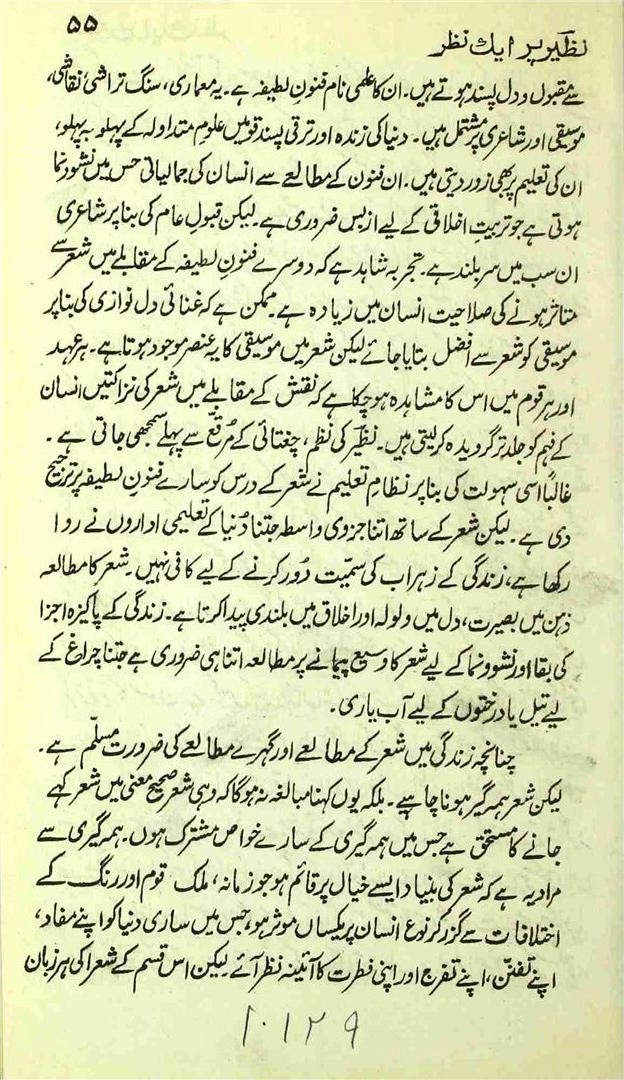 ۵۵
نظیر پر ایک نظر
سے مقبول و دل پسند ہوتے ہیں۔ ان کا علمی نام فنونِ لطیفہ ہے۔ یہ معماری، سنگ تراشی، نقاشی،
موسیقی اور شاعری پر مشتمل ہیں۔ دنیا کی زندہ اور ترقی پسند قومیں علومِ متداولہ کے پہلو بہ پہلو،
ان کی تعلیم پر بھی زور دیتی ہیں۔ ان فنون کے مطالعے سے انسان کی جمالیاتی حس میں نشو و نما
ہوتی ہے جو تربیت اخلاقی کے لیے ازبس ضروری ہے۔ لیکن قبولِ عام کی بنا پر شاعری
ان سب میں سربلند ہے۔ تجربہ شاہد ہے کہ دوسرے فنونِ لطیفہ کے مقابلے میں شعر سے
متاثر ہونے کی صلاحیت انسان میں زیادہ ہے۔ ممکن ہے کہ غنائی دل نوازی کی بنا پر
موسیقی کو شعر سے افضل بتایا جائے لیکن شعر میں موسیقی کا یہ عنصر موجود ہوتا ہے۔ ہر عہد
اور ہر قوم میں اس کا مشاہدہ ہو چکا ہے کہ نقش کے مقابلے میں شعر کی نزاکتیں انسان
کے فہم کو جلد تر گرویدہ کر لیتی ہیں۔ نظیرؔ کی نظم، چغتائی کے مُرقّع سے پہلے سمجھی جاتی ہے۔
غالباً اسی سہولت کی بنا پر نظامِ تعلیم نے شعر کے درس کو سارے فنونِ لطیفہ پر ترجیح
دی ہے۔ لیکن شعر کے ساتھ اتنا جزوی واسطہ جتنا دُنیا کے تعلیمی اداروں نے روا
رکھا ہے، زندگی کے زہراب کی سمیّت دُور کرنے کے لیے کافی نہیں۔ شعر کا مطالعہ
ذہن میں بصیرت، دل میں ولولہ اور اخلاق میں بلندی پیدا کرتا ہے۔ زندگی کے پاکیزہ اجزا
کی بقا اور نشو و نما کے لیے شعر کا وسیع پیمانے پر مطالعہ اتنا ہی ضروری ہے جتنا چراغ کے
لیے تیل یا درختوں کے لیے آب یاری۔
چنانچہ زندگی میں شعر کے مطالعے اور گہرے مطالعے کی ضرورت مسلّم ہے۔
لیکن شعر ہمہ گیر ہونا چاہیے۔ بلکہ یوں کہنا مبالغہ نہ ہوگا کہ وہی شعر صحیح معنی میں شعر کہے
جانے کا مستحق ہے جس میں ہمہ گیری کے سارے خواص مشترک ہوں۔ ہمہ گیری سے
مراد یہ ہے کہ شعر کی بنیاد ایسے خیال پر قائم ہو جو زمانہ، ملک قوم اور رنگ کے
اختلافات سے گزر کر نوع انسان پر یکساں موثر ہو، جس میں ساری دنیا کو اپنے مفاد،
اپنے تفنّن، اپنے تفرج اور اپنی فطرت کا آئینہ نظر آئے۔ لیکن اس قسم کے شعرا کی ہر زبان
۱۰۱۲۹